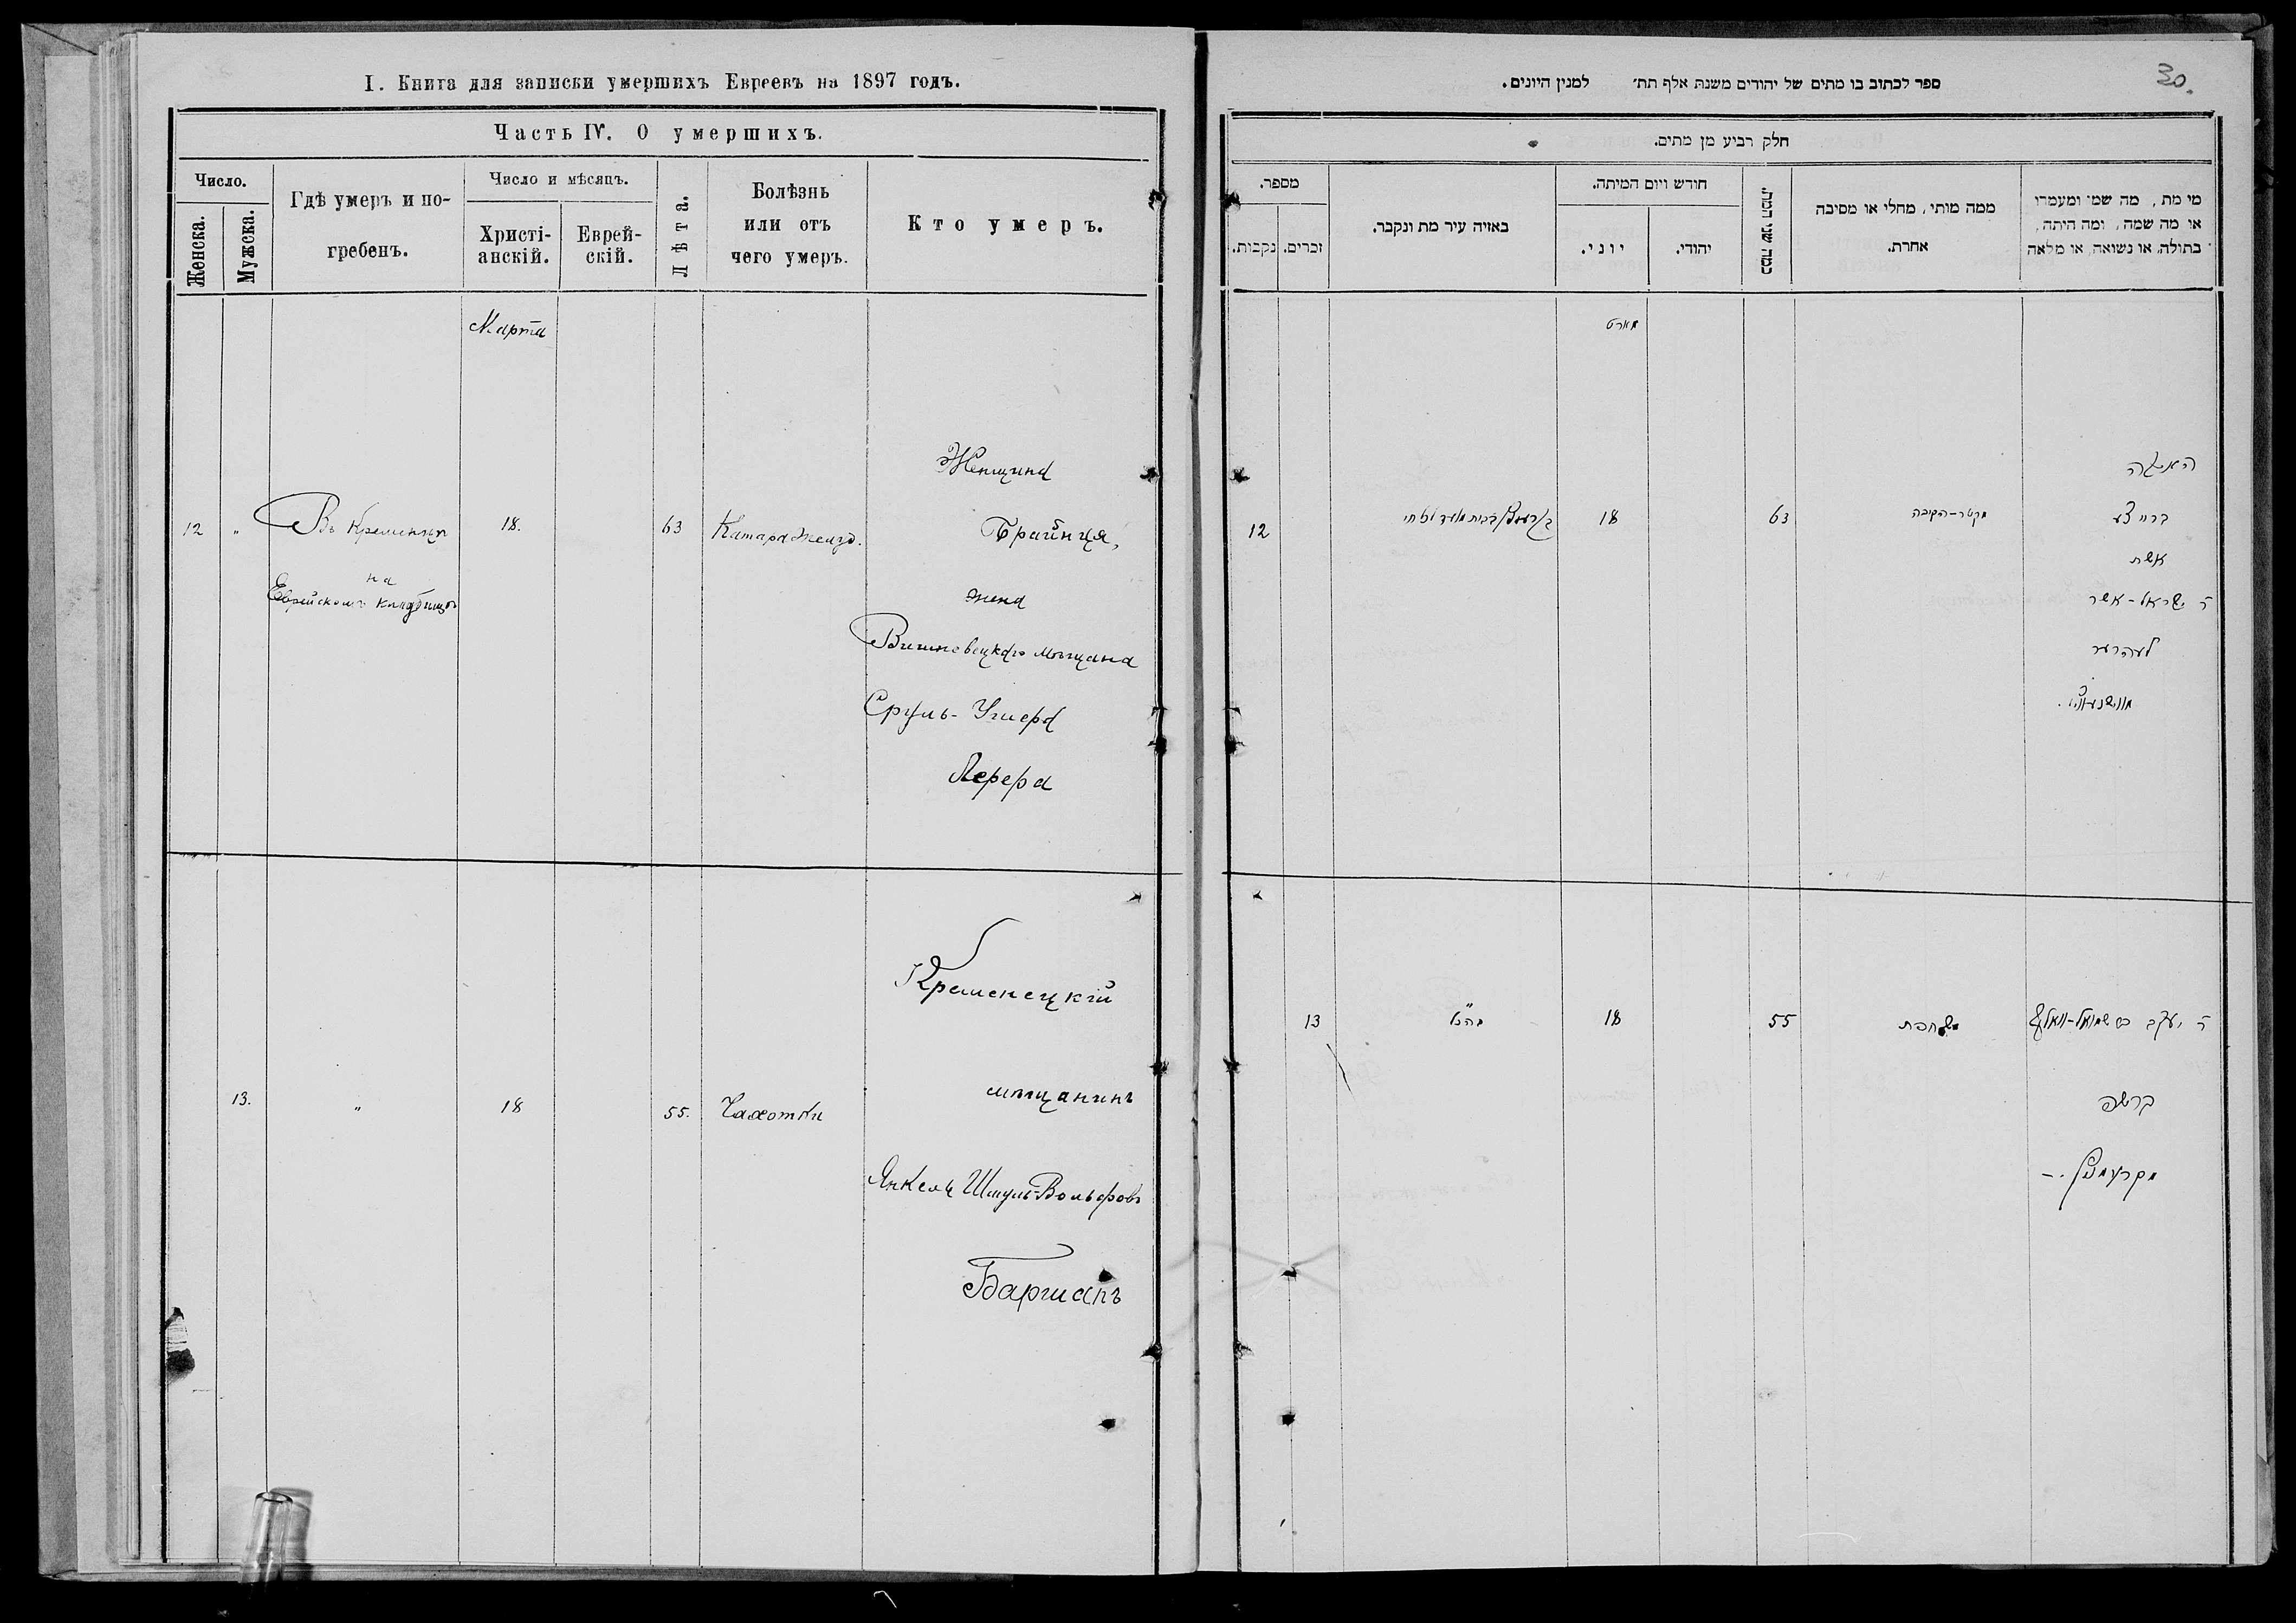 I. Книга для записки умершихъ Евреевъ на 1897 годъ.
Часть IV. О умершихъ.
Число.
Женска.
Мужска.
Гдѣ умеръ и по-
гребенъ.
Число и мѣсяцъ.
Христі-
анскій.
Еврей-
скій.
Лѣта.
Болѣзнь
или отъ
чего умеръ.
Кто умеръ.
Марта
12
"
Въ Кременцѣ
на
Еврейскомъ кладбищѣ
18.
63
Катара желуд.
Женщина
Брайнця,
жена
Вишневецкаго мѣщана
Сруль-Ушера
Лерера
13.
"
18
55.
Чахотки
Кременецкій
мѣщанинъ
Янкель Шмуль-Вольфовъ
Баршапъ
30.
ספר לכתוב בו מתים של יהודים משנת אלף תת׳ למנין היונים.
חלק רביע מן מתים.
מספר.
נקבות.
זכרים.
באזיה עיר מת ונקבר.
חודש ויום המיתה.
יוני.
יהודי.
כמה שני חבה..
ממה מותי, מחלי או מסיבה
אחרת.
מי מת, מה שמו ומעמדו
או מה שמה, ומה היתה,
בתולה, או נשואה, או מלאה
מארט
12
18
63
מקטר-הקיבה
האשה
אשת
ר׳ ישראל-אשר
לעהרער
13
כנ"ל
18
55
משחפת
ר׳ יעקב בן שמואל-וואלף
ברשפ
מקרעמניץ.-